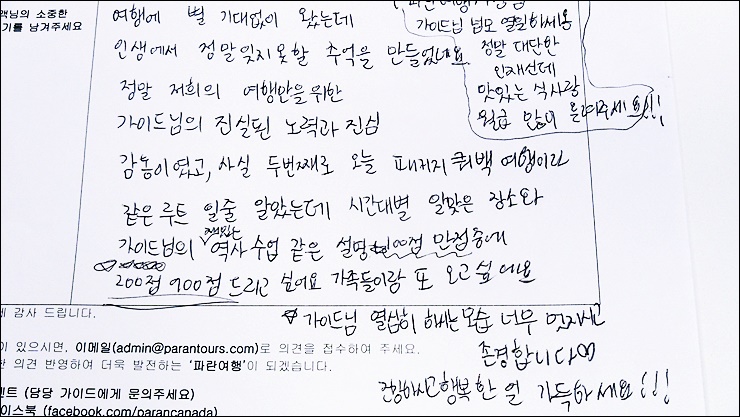 객님의 소중한
기를 남겨주세요
여행에 별 기대없이 왔는데
인생에서 정말 잊지 못할 추억을 만들었네요
정말 저희의 여행만을 위한
가이드님의 진실된 노력과 진심
감동이였고, 사실 두번째로 오늘 패키지 퀘백 여행이라
같은 루트 일줄 알았는데 시간대별 알맞은 장소와
가이드님의 재밌는 역사 수업 같은 설명 만점중에
200점 900점 드리고 싶어요 가족들이랑 또 오고 싶어요
가이드님 넘모 열일하세용
정말 대단한
인재신데
맛있는 식사랑
월급 많이 올려주세요!!!
가이드님 열심히 하시는 모습 너무 멋지시고
존경합니다♡
건강하시고 행복한 일 가득하세요!!!
감사 드립니다.
이 있으시면, 이메일(admin@parantours.com)로 의견을 접수하여 주세요.
한 의견 반영하여 더욱 발전하는 '파란여행'이 되겠습니다.
벤트 (담당 가이드에게 문의주세요)
이스북 (facebook.com/parancanada)